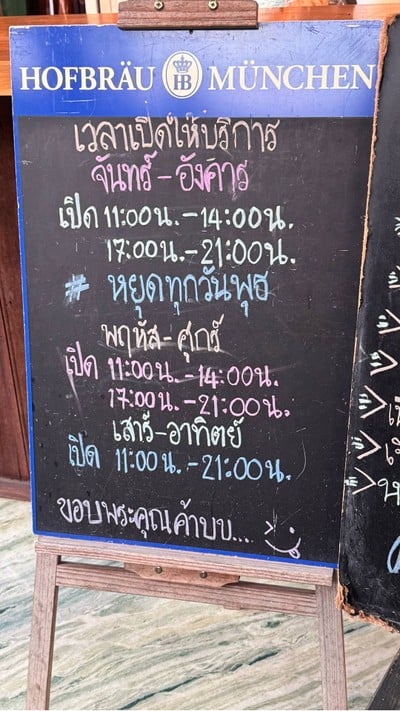 HOFBRÄU HB MÜNCHEN
เวลาเปิดให้บริการ
จันทร์-อังคาร
เปิด 11:00น.-14:00น.
17:00น.-21:00น.
# หยุดทุกวันพุธ
พฤหัส-ศุกร์
เปิด 11:00น.-14:00น.
17:00น.-21:00น.
เสาร์-อาทิตย์
เปิด 11:00น.-21:00น.
ขอบพระคุณค้าบบ...